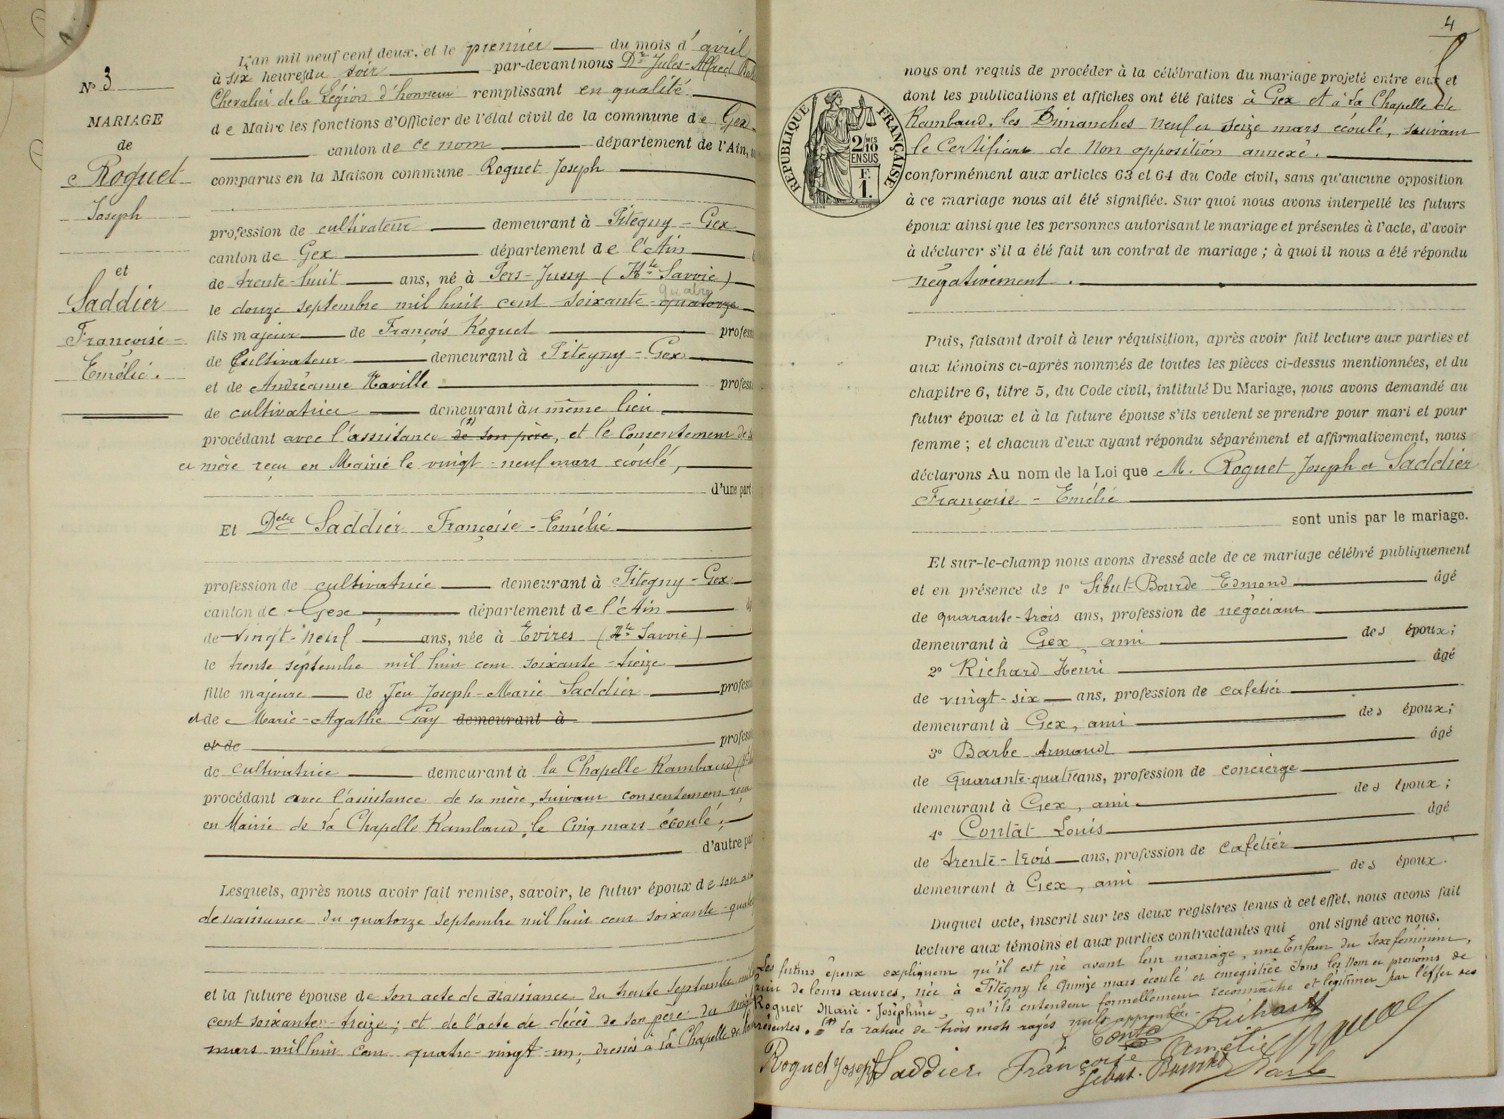 N° 3
MARIAGE
de
Roguet
Joseph
et
Saddier
Françoise-
Emélie.
L'an mil neuf cent deux, et le premier du mois d'avril
à six heures du soir par-devant nous Dr Jules-Alfred
Chevalier de la Légion d'honneur remplissant en qualité
de Maire les fonctions d'Officier de l'état civil de la commune de Gex
canton de ce nom département de l'Ain,
comparus en la Maison commune Roguet Joseph
profession de cultivateur demeurant à Pitegny-Gex
canton de Gex département de l'Ain
de trente-huit ans, né à Pers-Jussy (Hte Savoie)
quatre
le douze septembre mil huit cent soixante-quatorze
fils majeur de François Roguet profess
de Cultivateur demeurant à Pitegny-Gex
et de Andréanne Naville profess
de cultivatrice demeurant au même lieu
procédant avec l'assistance (1) de son père, et le consentement de s
a mère reçu en Mairie le vingt-neuf mars écoulé,
d'une part
Et Delle Saddier Françoise-Emélie
profession de cultivatrice demeurant à Pitegny-Gex
canton de Gex, département de l'Ain
de vingt-neuf ans, née à Evires (Hte Savoie)
le trente septembre mil huit cent soixante-treize
fille majeure de feu Joseph-Marie Saddier profess
et de Marie-Agathe Gay demeurant à
et de profess
de cultivatrice demeurant à la Chapelle Rambaud
procédant avec l'assistance de sa mère, suivant consentement reçu
en Mairie de La Chapelle Rambaud, le cinq mars écoulé.
d'autre par
Lesquels, après nous avoir fait remise, savoir, le futur époux de son
de naissance du quatorze septembre mil huit cent soixante-quat
et la future épouse de son acte de naissance du trente septembre
cent soixante-treize; et de l'acte de décès de son père du vingt
mars mil huit cent quatre-vingt-un, dressés à la Chapelle
4
RÉPUBLIQUE FRANÇAISE
2 MES
10
EN SUS
F.
1.
nous ont requis de procéder à la célébration du mariage projeté entre eux et
dont les publications et affiches ont été faites à Gex et à La Chapelle de
Rambaud, les Dimanches neuf et seize mars écoulé, suivant
le certificat de Non opposition annexé.
conformément aux articles 63 et 64 du Code civil, sans qu'aucune opposition
à ce mariage nous ait été signifiée. Sur quoi nous avons interpellé les futurs
époux ainsi que les personnes autorisant le mariage et présentes à l'acte, d'avoir
à déclarer s'il a été fait un contrat de mariage ; à quoi il nous a été répondu
négativement.
Puis, faisant droit à leur réquisition, après avoir fait lecture aux parties et
aux témoins ci-après nommés de toutes les pièces ci-dessus mentionnées, et du
chapitre 6, titre 5, du Code civil, intitulé Du Mariage, nous avons demandé au
futur époux et à la future épouse s'ils veulent se prendre pour mari et pour
femme ; et chacun d'eux ayant répondu séparément et affirmativement, nous
déclarons Au nom de la Loi que M. Roguet Joseph et Saddier
Françoise-Emélie
sont unis par le mariage.
Et sur-le-champ nous avons dressé acte de ce mariage célébré publiquement
et en présence de 1° Sibut-Bourde Edmond âgé
de quarante-trois ans, profession de négociant
demeurant à Gex, ami des époux;
2° Richard Henri âgé
de vingt-six ans, profession de cafetier
demeurant à Gex, ami des époux;
3° Barbe Armand âgé
de quarante-quatre ans, profession de concierge
demeurant à Gex, ami des époux;
4° Contat Louis âgé
de trente-trois ans, profession de cafetier
demeurant à Gex, ami des époux.
Duquel acte, inscrit sur les deux registres tenus à cet effet, nous avons fait
lecture aux témoins et aux parties contractantes qui ont signé avec nous.
Les futurs époux expliquent qu'il est né avant leur mariage, une Enfant du sexe féminin,
de leurs œuvres, née à Pitegny le quinze mars écoulé et enregistrée sous les Nom et prénoms de
Roguet Marie-Joséphine, qu'ils entendent formellement reconnaître et légitimer par l'effet des
présentes. (1) La rature de trois mots rayés nuls approuvée.
Contat Richard
Roguet Joseph Saddier Françoise Amélie
Sibut-Bourde Barbe